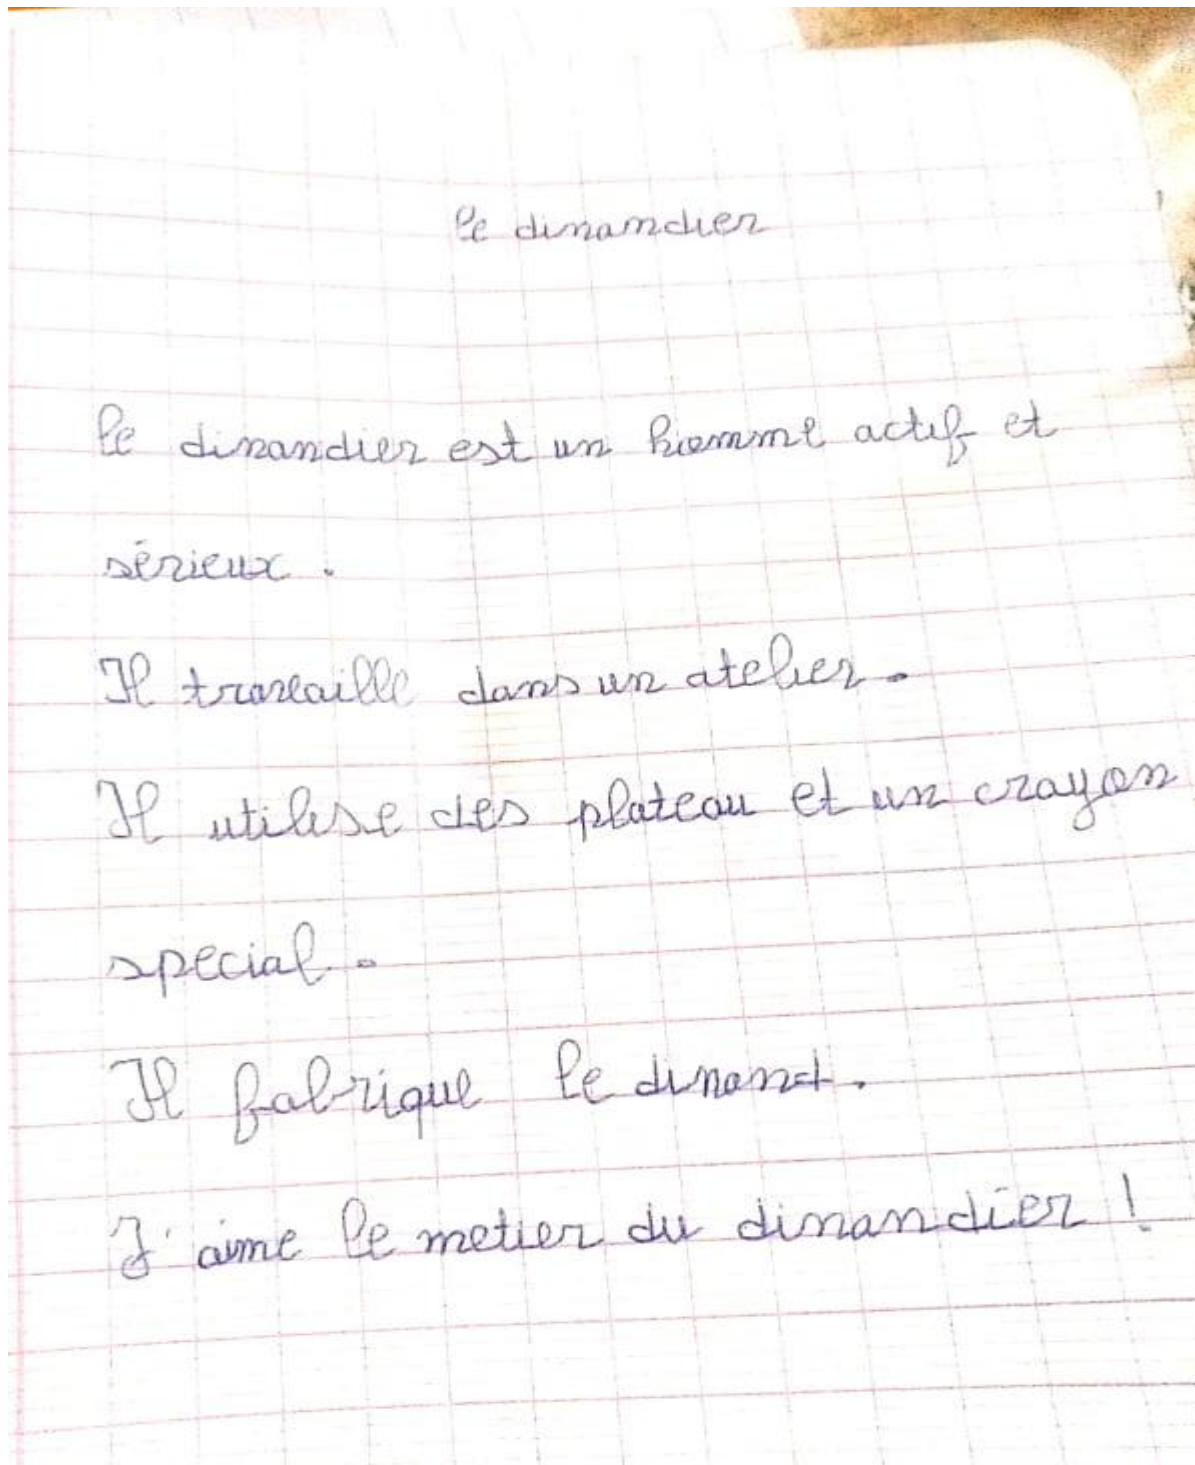 le dinandier
le dinandier est un homme actif et
sérieux.
Il travaille dans un atelier.
Il utilise des plateau et un crayon
special.
Il fabrique le dinand.
J'aime le metier du dinandier !